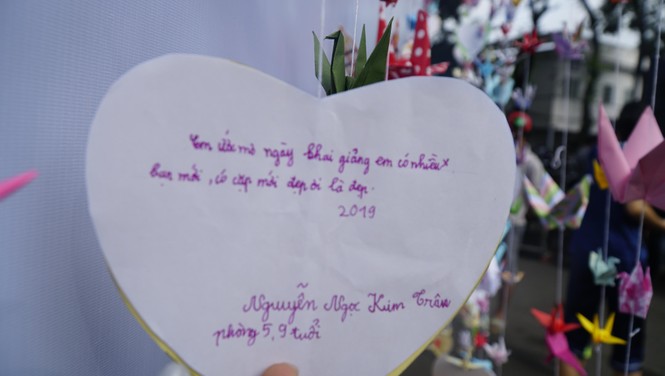 Em ước mơ ngày khai giảng em có nhiều
bạn mới, có cặp mới đẹp ơi là đẹp.
2019
Nguyễn Ngọc Kim Trâm
phòng 5, 9 tuổi